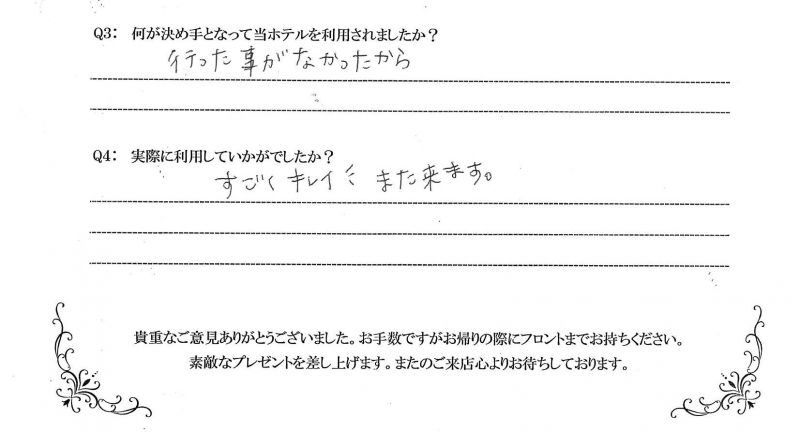 Q3: 何が決め手となって当ホテルを利用されましたか？
行った事がなかったから
Q4: 実際に利用していかがでしたか？
すごくキレイ また来ます。
貴重なご意見ありがとうございました。お手数ですがお帰りの際にフロントまでお持ちください。
素敵なプレゼントを差し上げます。またのご来店心よりお待ちしております。